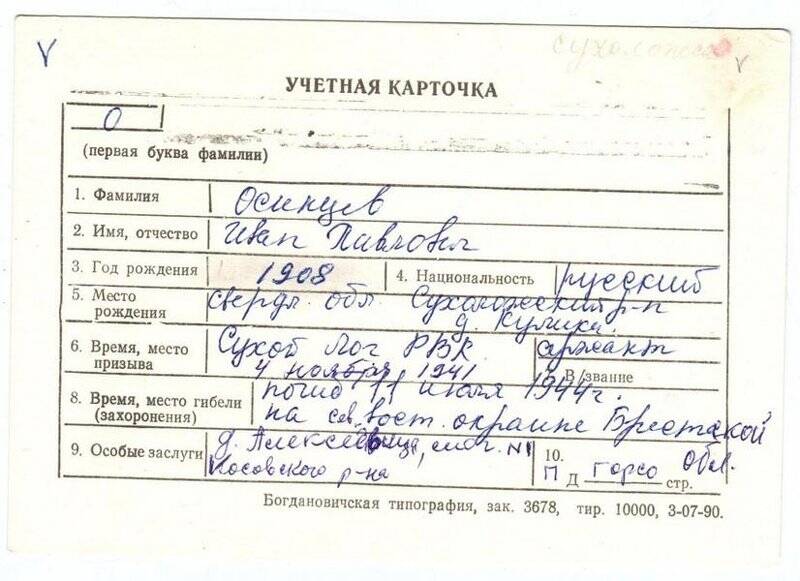 УЧЕТНАЯ КАРТОЧКА
О
(первая буква фамилии)
1. Фамилия Осинцев
2. Имя, отчество Иван Павлович
3. Год рождения 1908 4. Национальность русский
5. Место рождения свердл. обл. Сухоложский р-н
д. Кулики.
6. Время, место призыва Сухой Лог РВК
4 ноября 1941
сержант
В/звание
8. Время, место гибели (захоронения) погиб 11 июля 1944г.
на сев. вост. окраине Брестской
обл.
9. Особые заслуги д. Алексеевица, мог. №1
Косовского р-на
10.
П Д стр.
Богдановичская типография, зак. 3678, тир. 10000, 3-07-90.